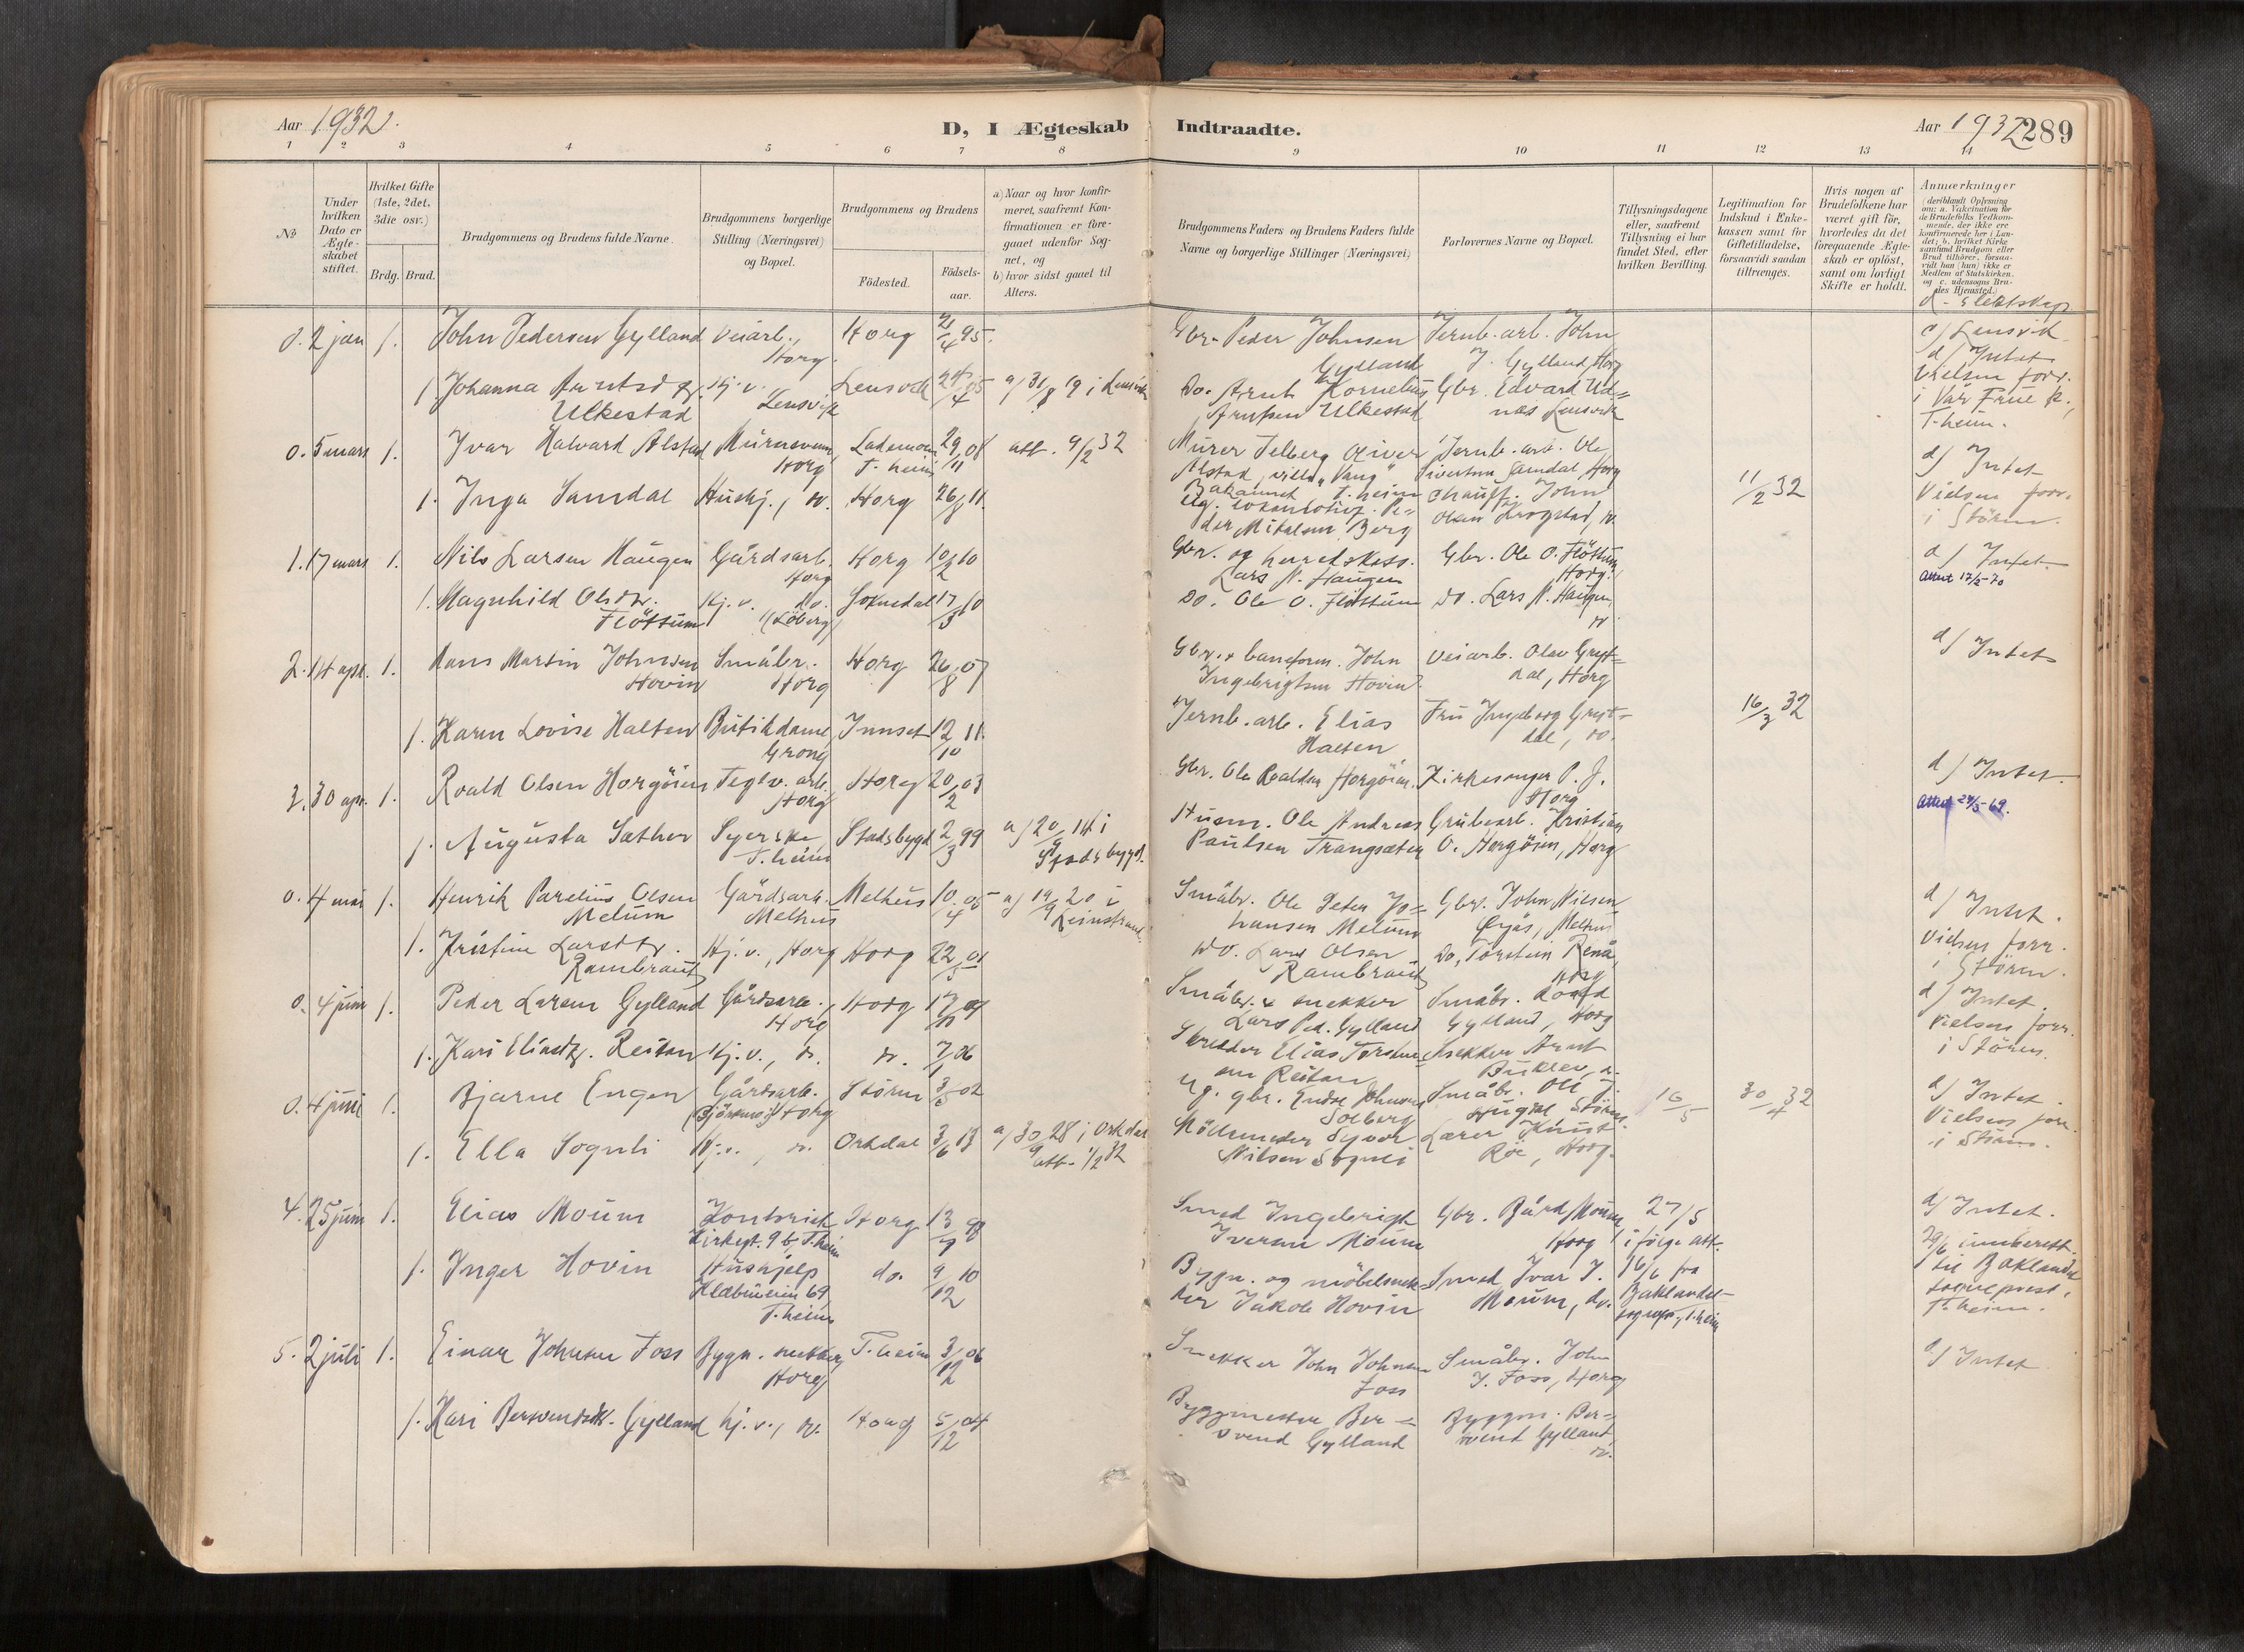 Aar 1932.
D, I Ægteskab
Indtraadte.
Aar 1932
289
1 2 3 4 5 6 7 8 9 10 11 12 13 14
No
Under hvilken Dato er Ægteskabet stiftet.
Hvilket Gifte (1ste, 2det, 3die osv.)
Brdg. Brud.
Brudgommens og Brudens fulde Navne.
Brudgommens borgerlige Stilling (Næringsvei) og Bopæl.
Brudgommens og Brudens
Födested.
Födsels-aar.
a) Naar og hvor konfir-
meret, saafremt Kon-
firmationen er fore-
gaaet udenfor Sog-
net, og
b) hvor sidst gaaet til
Alters.
Brudgommens Faders og Brudens Faders fulde
Navne og borgerlige Stillinger (Næringsvei)
Forlovernes Navne og Bopæl.
Tillysningsdagene
eller, saafremt
Tillysning ei har
fundet Sted, efter
hvilken Bevilling.
Legitimation for
Indskud i Enke-
kassen samt for
Giftetilladelse,
forsaavidt saadan
tiltrænges.
Hvis nogen af
Brudefolkene har
været gift för,
hvorledes da det
foregaaende Ægte-
skab er oplöst,
samt om lovligt
Skifte er holdt.
Anmærkninger
(deriblandt Oplysning
om: a. Vakcination for
de Brudefolks Vedkom-
mende, der ikke ere
konfirmerede her i Lan-
det; b. hvilket Kirke
samfund Brudgom eller
Brud tilhörer, forsaa-
vidt han (hun) ikke er
Medlem af Statskirken.
og c. udensogns Bru-
des Hjemsted.)
d - Slektskap
0. 2 jan 1. John Pedersen Gylland Veiarb., Horg. Horg 21/4 95.
Gbr. Peder Johnsen Gylland
Jernb. arb. John J. Gylland, Horg
c) Lensvik
d) Intet
Vielsen forr.
i Vår Frue k.,
T.heim.
1. Johanna Arntsdtr. Ulkestad Hj. v. Lensvik Lensvik a) 31/8 19 i Lensvik
Do. Arnt Kornelius Arntsen Ulkestad
Gbr. Edvard Lensvik
0. 5 mars 1. Ivar Halvard Alstad Murersvenn, Horg Lademoen T.heim 29/11 08 att. 9/2 32
Murer Telberg Oliver Alstad, villa "Vang" T.heim
Jernb. arb. Ole Sivertsen Samdal, Horg
11/2 32
d) Intet
Vielsen forr.
i Støren.
1. Inga Samdal Hushj., do. Horg 26/8 11.
der Mikalsen Berg
Chauff. John Olsen Krogstad, do.
1. 17 mars 1. Nils Larsen Haugen Gårdsarb. Horg Horg 10/2 10
Gbr. og herredskass. Lars N. Haugen
Gbr. Ole O. Fløttum Horg.
d) Intet.
Attest 12/2-70
1. Magnhild Olsdtr. Fløttum Hj. v. do. (Løberg) Soknedal 17/3 10
Do. Ole O. Fløttum
Do. Lars N. Haugen do.
2. 14 apr. 1. Hans Martin Johnsen Hovin Småbr. Horg Horg 26/8 07
Gbr. + baneform. John Ingebrigtsen Hovin
Veiarb. Olav Grøtdal, Horg
d) Intet
1. Karen Lovise Halten Butikdame, Grong Innset 12/10 11.
Jernb. arb. Elias Halten
Fru Ingeborg Grøtdal, do.
16/3 32
3. 30 apr. 1. Roald Olsen Horgöien Teglv. arb. Horg Horg 20/2 03
Gbr. Ole Roaldsen Horgöien.
Kirkesanger P. J. Horg
d) Intet.
Attest 24/5-69.
1. Augusta Sæther Syerske T.heim Stadsbygd 2/3 99 a) 20/9 14 i Stadsbygd.
Husm. Ole Andreas Paulsen Trangsæter
Grubearb. Kristian O. Horgöien, Horg
0. 4 mai 1. Henrik Parelius Olsen Melum Gårdsarb. Melhus Melhus 10/4 05 a) 19/9 20 i Leinstrand.
Småbr. Ole Peter Johansen Melum
Gbr. John Nilsen Öyås, Melhus
d) Intet.
Vielsen forr.
i Støren.
1. Kristine Larsdtr. Rambraut Hj. v., Horg Horg 22/5 01
Do. Lars Olsen Rambraut
Do. Torstein Renå, Horg
0. 4 juni 1. Peder Larsen Gylland Gårdsarb., Horg Horg
Småbr. & snekker Lars Ped. Gylland
Småbr. Gylland, Horg
d) Intet.
Vielsen forr.
i Støren.
1. Kari Eliasdtr. Reitan Hj. v., do. do. 7/1 06
Skredder Elias Torstensen Reitan
Snekker Arnt
0. 4 juni 1. Bjarne Engen Gårdsarb. Horg Støren 3/5 02
Ug. gbr. Endre Johnsen Solberg
Småbr. Ole J. Støren.
16/5
30/4 32
d) Intet.
Vielsen forr.
i Støren.
1. Ella Sognli Hj. v., do. Orkdal 3/6 13 a) 30/9 28 i Orkdal att. 1/2 32
Nilsen Sognli
Lærer Knut Röe, Horg.
4. 25 juni 1. Elias Moum Kontorist Kirkegt. 9 b, T.heim Horg 13/9 98
Smed Ingebrigt Iversen Moum
Gbr. Bård Moum, Horg
27/5
i følge att.
16/6 fra
Baklandet
sognepr., T.heim
d) Intet.
29/6 innberett.
til Baklandet
sogneprest,
T.heim.
1. Inger Hovin Hushjelp Klæbuveien 69 T.heim do. 9/12 10
Bygn. og möbelsnekker Jakob Hovin
Smed Ivar I. Moum, do.
5. 2 juli 1. Einar Johnsen Foss Bygn. snekker, Horg T.heim 3/12 06
Snekker John Johnsen Foss
Småbr. John J. Foss, Horg
d) Intet
1. Kari Bersvendsdtr. Gylland hj. v., do. Horg 5/12 04
Byggmester Bersvend Gylland
Byggm. Bersvend Gylland, do.